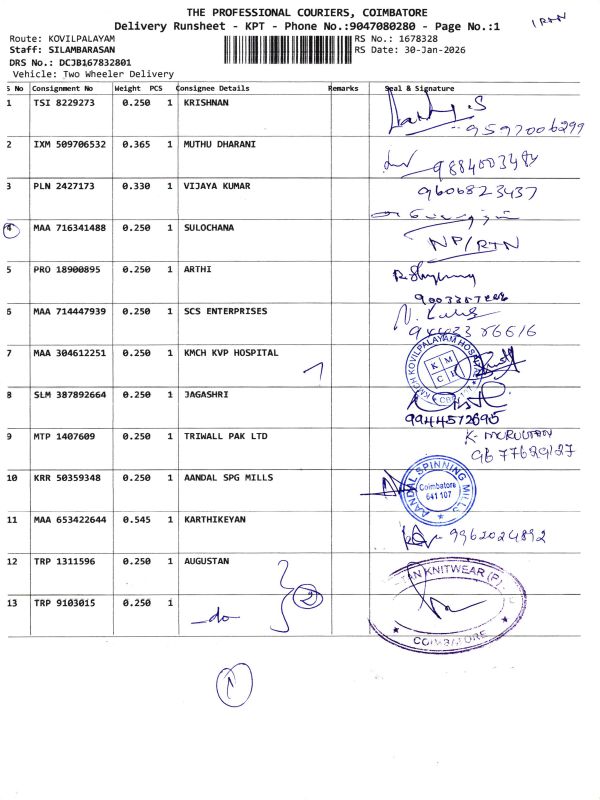 THE PROFESSIONAL COURIERS, COIMBATORE
Delivery Runsheet - KPT - Phone No.:9047080280 - Page No.:1
1 RTN
Route: KOVILPALAYAM
RS No.: 1678328
Staff: SILAMBARASAN
RS Date: 30-Jan-2026
DRS No.: DCJB167832801
Vehicle: Two Wheeler Delivery
S No Consignment No Weight PCS Consignee Details Remarks Seal & Signature
1 TSI 8229273 0.250 1 KRISHNAN
9597006299
2 IXM 509706532 0.365 1 MUTHU DHARANI
3 PLN 2427173 0.330 1 VIJAYA KUMAR 9606823437
4 MAA 716341488 0.250 1 SULOCHANA
NP/RTN
5 PRO 18900895 0.250 1 ARTHI
6 MAA 714447939 0.250 1 SCS ENTERPRISES
7 MAA 304612251 0.250 1 KMCH KVP HOSPITAL
KMCH KOVILPALAYAM HOSPITAL
K M C H
CBE
8 SLM 387892664 0.250 1 JAGASHRI
9944572695
9 MTP 1407609 0.250 1 TRIWALL PAK LTD
9677629127
10 KRR 50359348 0.250 1 AANDAL SPG MILLS
AANDAL SPINNING MILLS
Coimbatore
641 107
11 MAA 653422644 0.545 1 KARTHIKEYAN
9962024892
12 TRP 1311596 0.250 1 AUGUSTAN
2
KNITWEAR (P)
13 TRP 9103015 0.250 1
do
COIMBATORE
1